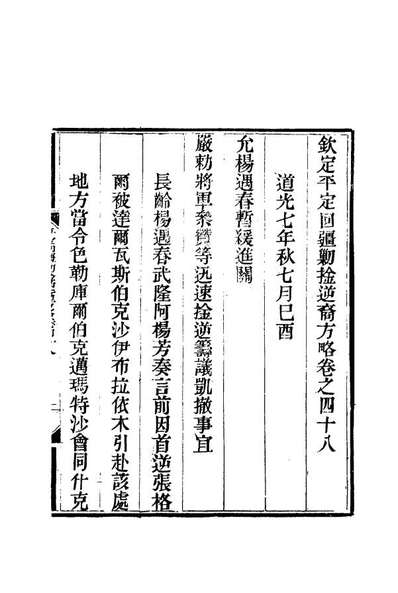 欽定平定回疆勦捡逆裔方略卷之四十八
道光七年秋七月己酉
允楊遇春暫緩進關
嚴勅將軍叅贊等迅速捡逆籌議凱撤事宜
長齡楊遇春武隆阿楊芳奏言前因首逆張格
爾被達爾瓦斯伯克沙伊布拉依木引赴該處
地方當令色勒庫爾伯克邁瑪特沙會同什克